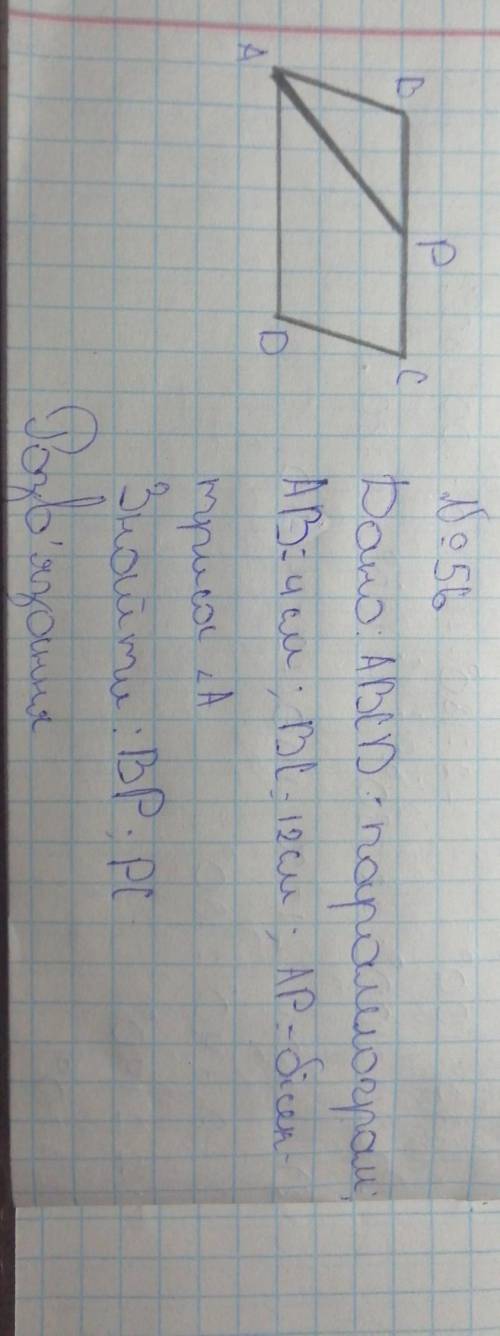 № 56
Дано: ABCD - паралелограм;
AB = 4 см; BC = 12 см; AP - бісек-
триса ∠A
Знайти: BP; PC
Розв'язання
A B P C D